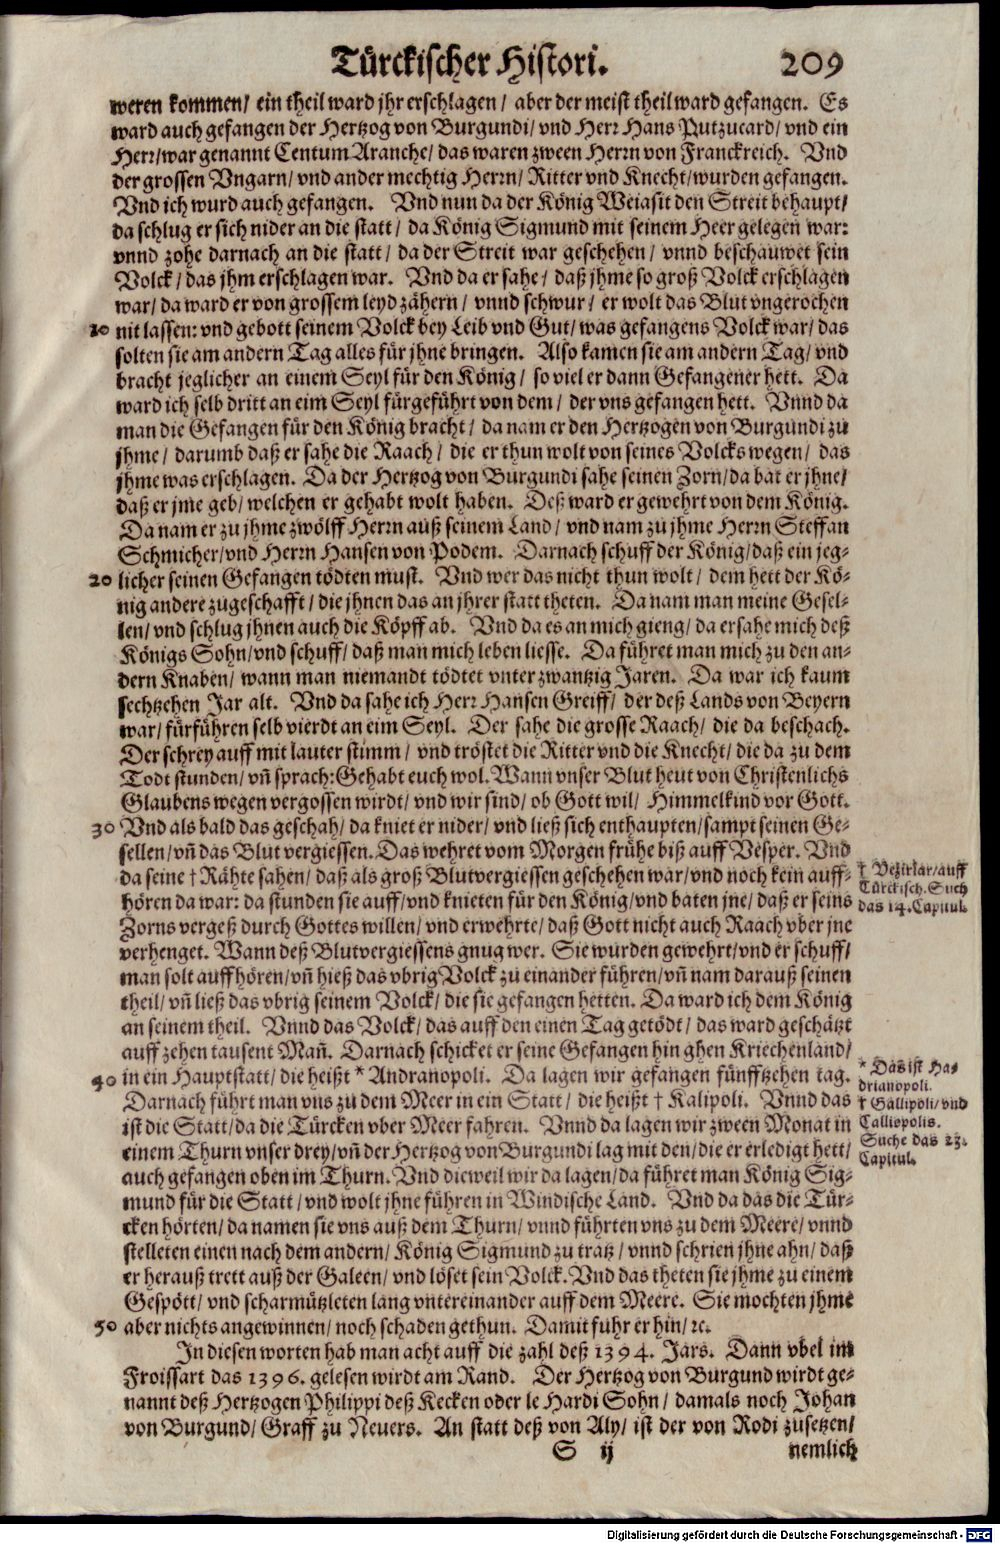 Türckischer Histori. 209
weren kommen/ ein theil ward jhr erschlagen/ aber der meist theil ward gefangen. Es
ward auch gefangen der Hertzog von Burgundi/ vnd Herr Hans Putzucard/ vnd ein
Herr/ war genannt Centum Aranche/ das waren zween Herrn von Franckreich. Vnd
der grossen Vngarn/ vnd ander mechtig Herrn/ Ritter vnd Knecht/ wurden gefangen.
Vnd ich wurd auch gefangen. Vnd nun da der König Weiasit den Streit behaupt/
da schlug er sich nider an die statt/ da König Sigmund mit seinem Heer gelegen war:
vnnd zohe darnach an die statt/ da der Streit war geschehen/ vnnd beschauwet sein
Volck/ das jhm erschlagen war. Vnd da er sahe/ daß jhme so groß Volck erschlagen
war/ da ward er von grossem leyd zähern/ vnnd schwur/ er wolt das Blut vngerochen
10 nit lassen: vnd gebott seinem Volck bey Leib vnd Gut/ was gefangens Volck war/ das
solten sie am andern Tag alles für jhne bringen. Also kamen sie am andern Tag/ vnd
bracht jeglicher an einem Seyl für den König/ so viel er dann Gefangener hett. Da
ward ich selb dritt an eim Seyl fürgeführt von dem/ der vns gefangen hett. Vnnd da
man die Gefangen für den König bracht/ da nam er den Hertzogen von Burgundi zu
jhme/ darumb daß er sahe die Raach/ die er thun wolt von seines Volcks wegen/ das
jhme was erschlagen. Da der Hertzog von Burgundi sahe seinen Zorn/ da bat er jhne/
daß er jme geb/ welchen er gehabt wolt haben. Deß ward er gewehrt von dem König.
Da nam er zu jhme zwölff Herrn auß seinem Land/ vnd nam zu jhme Herrn Steffan
Schmicher/ vnd Herrn Hansen von Podem. Darnach schuff der König/ daß ein jeg-
20 licher seinen Gefangen tödten must. Vnd wer das nicht thun wolt/ dem hett der Kö-
nig andere zugeschafft/ die jhnen das an jhrer statt theten. Da nam man meine Gesel-
len/ vnd schlug jhnen auch die Köpff ab. Vnd da es an mich gieng/ da ersahe mich deß
Königs Sohn/ vnd schuff/ daß man mich leben liesse. Da führet man mich zu den an-
dern Knaben/ wann man niemandt tödtet vnter zwantzig Jaren. Da war ich kaum
sechtzehen Jar alt. Vnd da sahe ich Herr Hansen Greiff/ der deß Lands von Beyern
war/ fürführen selb vierdt an eim Seyl. Der sahe die grosse Raach/ die da beschach.
Der schrey auff mit lauter stimm/ vnd tröstet die Ritter vnd die Knecht/ die da zu dem
Todt stunden/ vñ sprach: Gehabt euch wol. Wann vnser Blut heut von Christenlichs
Glaubens wegen vergossen wirdt/ vnd wir sind/ ob Gott wil/ Himmelkind vor Gott.
30 Vnd als bald das geschah/ da kniet er nider/ vnd ließ sich enthaupten/ sampt seinen Ge-
sellen/ vñ das Blut vergiessen. Das wehret vom Morgen frühe biß auff Vesper. Vnd
da seine † Rähte sahen/ daß als groß Blutvergiessen geschehen war/ vnd noch kein auff-
hören da war: da stunden sie auff/ vnd knieten für den König/ vnd baten jne/ daß er seins
Zorns vergeß durch Gottes willen/ vnd erwehrte/ daß Gott nicht auch Raach vber jne
verhenget. Wann deß Blutvergiessens gnug wer. Sie wurden gewehrt/ vnd er schuff/
man solt auffhören/ vñ hieß das vbrig Volck zu einander führen/ vñ nam darauß seinen
theil/ vñ ließ das vbrig seinem Volck/ die sie gefangen hetten. Da ward ich dem König
an seinem theil. Vnnd das Volck/ das auff den einen Tag getödt/ das ward geschätzt
auff zehen tausent Mañ. Darnach schicket er seine Gefangen hin ghen Kriechenland/
40 in ein Hauptstatt/ die heißt * Andranopoli. Da lagen wir gefangen fünfftzehen tag.
Darnach führt man vns zu dem Meer in ein Statt/ die heißt † Kalipoli. Vnnd das
ist die Statt/ da die Türcken vber Meer fahren. Vnnd da lagen wir zween Monat in
einem Thurn vnser drey/ vñ der Hertzog von Burgundi lag mit den/ die er erledigt hett/
auch gefangen oben im Thurn. Vnd dieweil wir da lagen/ da führet man König Sig-
mund für die Statt/ vnd wolt jhne führen in Windische Land. Vnd da das die Tür-
cken hörten/ da namen sie vns auß dem Thurn/ vnnd führten vns zu dem Meere/ vnnd
stelleten einen nach dem andern/ König Sigmund zu tratz/ vnnd schrien jhne ahn/ daß
er herauß trett auß der Galeen/ vnd löset sein Volck. Vnd das theten sie jhme zu einem
Gespött/ vnd scharmützleten lang vntereinander auff dem Meere. Sie mochten jhme
50 aber nichts angewinnen/ noch schaden gethun. Damit fuhr er hin/ ꝛc.
In diesen worten hab man acht auff die zahl deß 1394. Jars. Dann vbel im
Froissart das 1396. gelesen wirdt am Rand. Der Hertzog von Burgund wirdt ge-
nannt deß Hertzogen Philippi deß Kecken oder le Hardi Sohn/ damals noch Johan
von Burgund/ Graff zu Nevers. An statt deß von Aly/ ist der von Rodi zusetzen/
S ij nemlich
† Vezirlar/ auff
Türckisch. Such
das 14. Capitul.
* Das ist Ha-
drianopoli.
† Gallipoli/ vnd
Calliopolis.
Suche das 23.
Capitul.
Digitalisierung gefördert durch die Deutsche Forschungsgemeinschaft - DFG